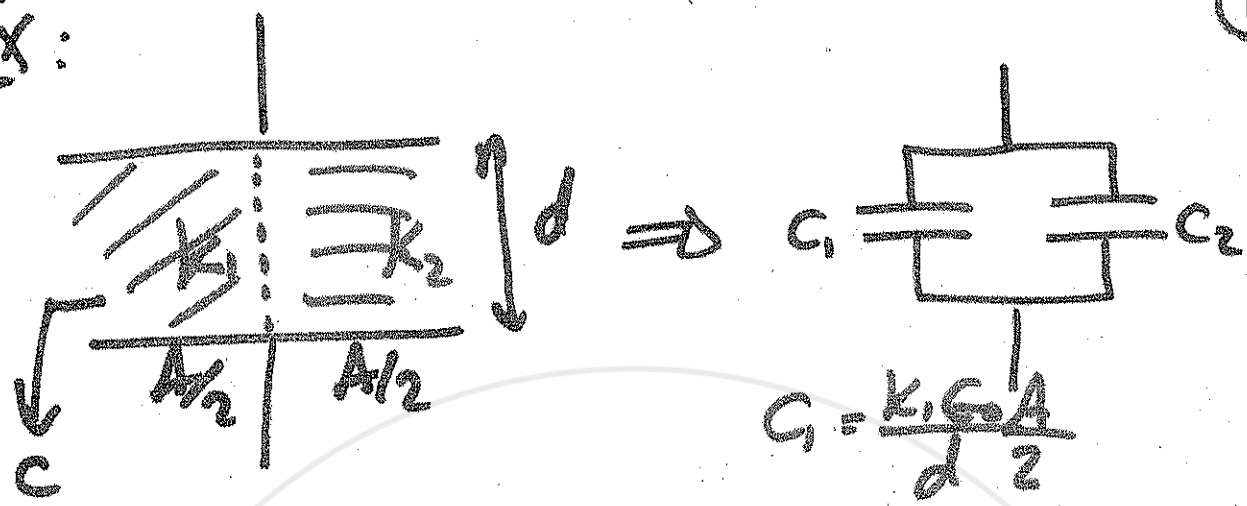 Ex:
k₁ k₂ d ⇒ C₁ C₂
A/2 A/2
C
C₁ = k₁ε₀A / d 2